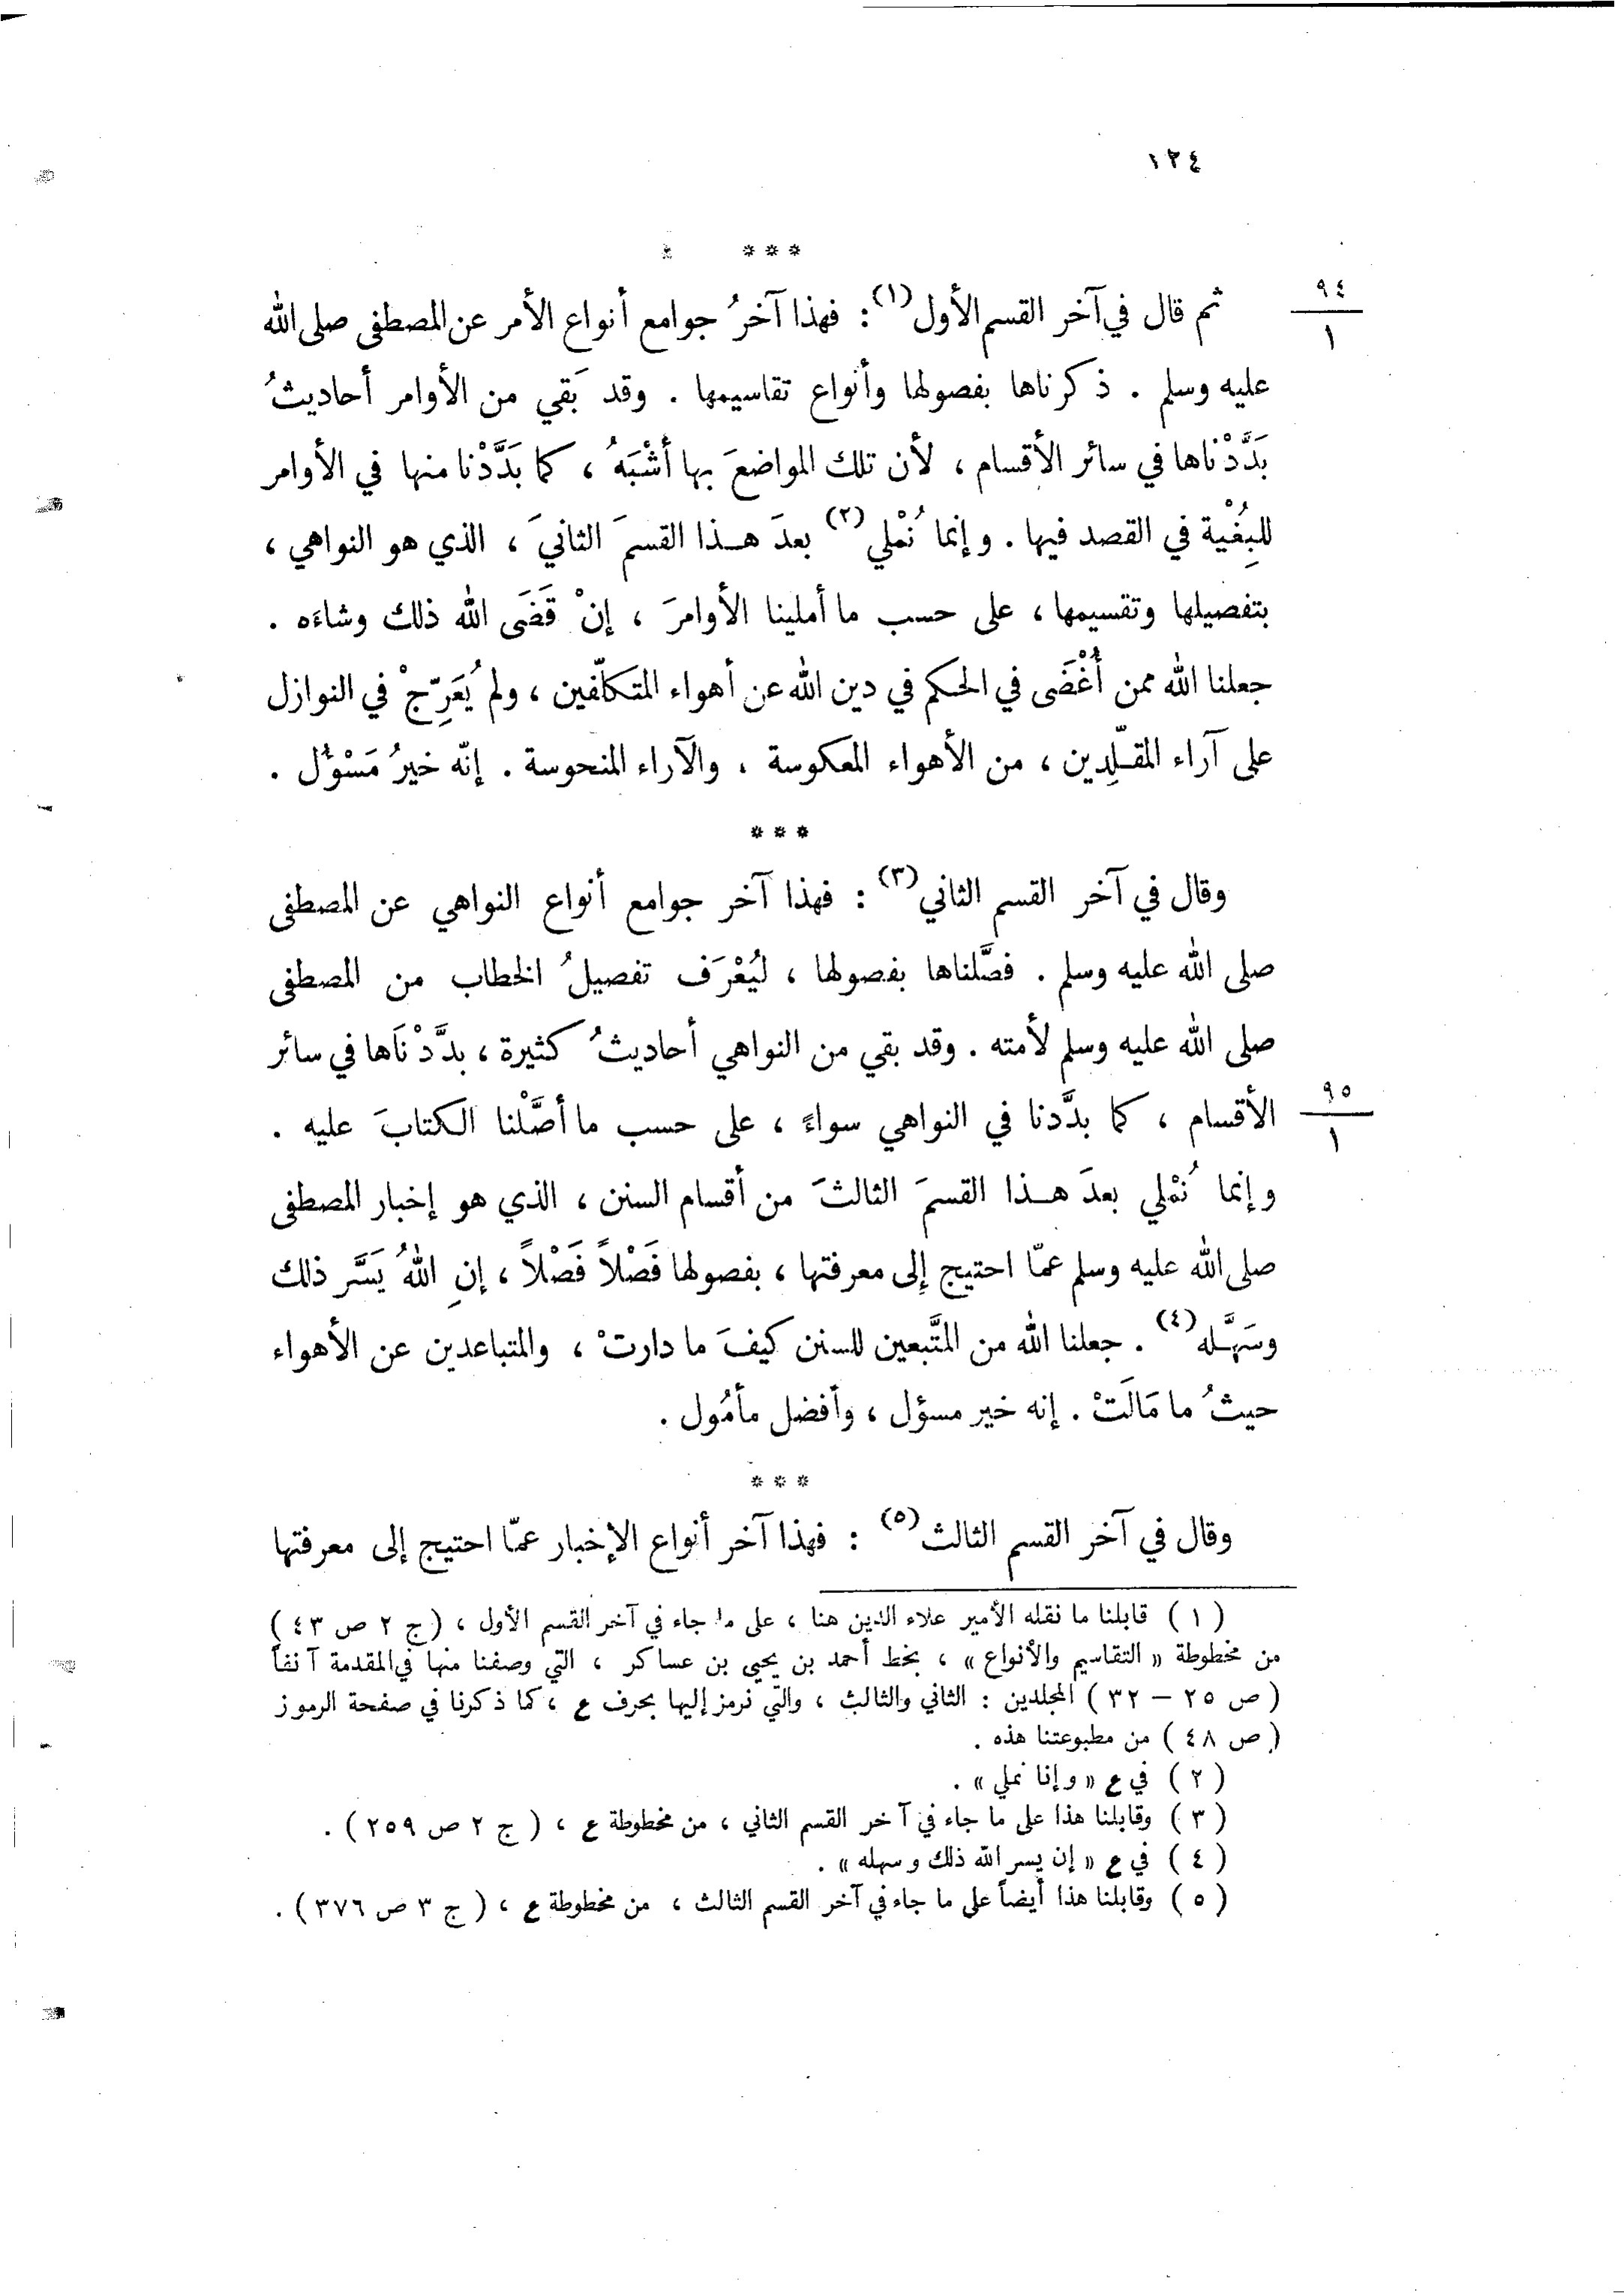 ١٢٤
***
٩٤
١
ثم قال في آخر القسم الأول (١) : فهذا آخرُ جوامع أنواع الأمر عن المصطفى صلى الله
عليه وسلم . ذكرناها بفصولها وأنواع تقاسيمها . وقد بَقي من الأوامر أحاديثُ
بَدَّدْناها في سائر الأقسام ، لأن تلك المواضعَ بها أشْبَهُ ، كما بَدَّدْنا منها في الأوامر
للبُِغْية في القصد فيها . وإنما نُمْلي (٢) بعدَ هـذا القسمَ الثانيَ ، الذي هو النواهي ،
بتفصيلها وتقسيمها ، على حسب ما أملينا الأوامرَ ، إنْ قَضَى الله ذلك وشاءَه .
جعلنا الله ممن أُغْضَى في الحكم في دين الله عن أهواء المتكلّفين ، ولم يُعَرِّجْ في النوازل
على آراء المقـلِّدين ، من الأهواء المعكوسة ، والآراء المنحوسة . إنّه خيرُ مَسْؤُل .
***
وقال في آخر القسم الثاني (٣) : فهذا آخر جوامع أنواع النواهي عن المصطفى
صلى الله عليه وسلم . فصَّلناها بفصولها ، ليُعْرَف تفصيلُ الخطاب من المصطفى
صلى الله عليه وسلم لأمته . وقد بقي من النواهي أحاديثُ كثيرة ، بدَّدْنَاها في سائر
٩٥
١
الأقسام ، كما بدَّدنا في النواهي سواءً ، على حسب ما أصَّلْنا الكتابَ عليه .
وإنما نُمْلي بعدَ هـذا القسمَ الثالثَ من أقسام السنن ، الذي هو إخبار المصطفى
صلى الله عليه وسلم عمّا احتيج إلى معرفتها ، بفصولها فَصْلاً فَصْلاً ، إنِ اللهُ يَسَّر ذلك
وسَهَّـله (٤) . جعلنا الله من المتَّبعين للسنن كيفَ ما دارتْ ، والمتباعدين عن الأهواء
حيثُ ما مَالَتْ . إنه خير مسؤل ، وأفضل مأمُول .
***
وقال في آخر القسم الثالث (٥) : فهذا آخر أنواع الإخبار عمّا احتيج إلى معرفتها
( ١ ) قابلنا ما نقله الأمير علاء الدين هنا ، على ما جاء في آخر القسم الأول ، ( ج ٢ ص ٤٣ )
من مخطوطة « التقاسيم والأنواع » ، بخط أحمد بن يحيى بن عساكر ، التي وصفنا منها في المقدمة آنفاً
( ص ٢٥ – ٣٢ ) المجلدين : الثاني والثالث ، والتي نرمز إليها بحرف ع ، كما ذكرنا في صفحة الرموز
( ص ٤٨ ) من مطبوعتنا هذه .
( ٢ ) في ع « وإنا نملي » .
( ٣ ) وقابلنا هذا على ما جاء في آخر القسم الثاني ، من مخطوطة ع ، ( ج ٢ ص ٢٥٩ ) .
( ٤ ) في ع « إن يسر الله ذلك وسهله » .
( ٥ ) وقابلنا هذا أيضاً على ما جاء في آخر القسم الثالث ، من مخطوطة ع ، ( ج ٣ ص ٣٧٦ ) .